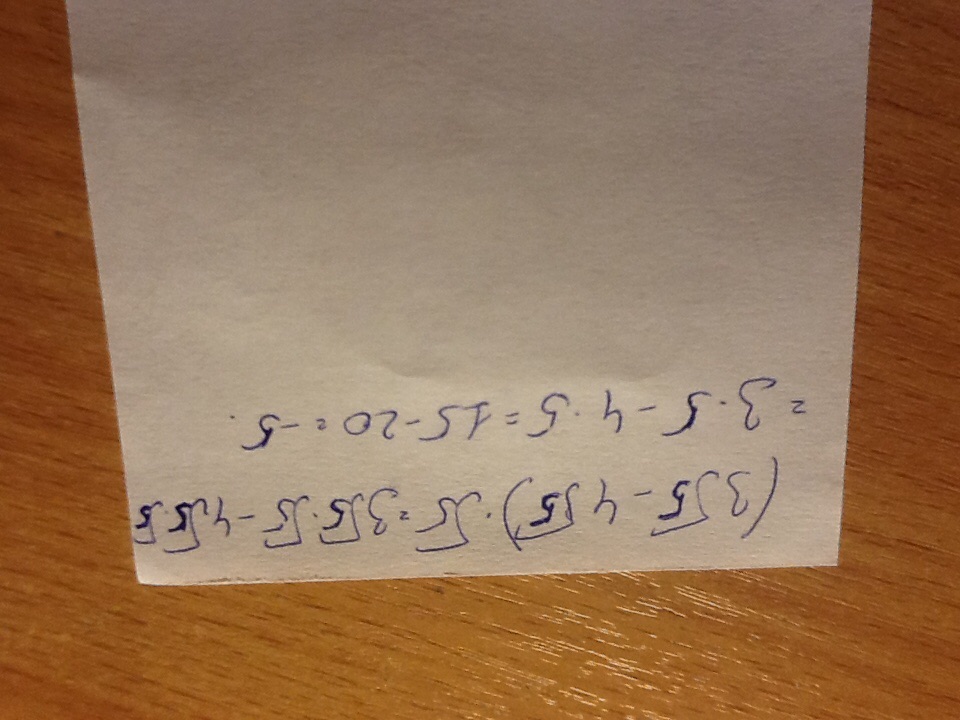 (3√5 - 4√5) · √5 = 3√5 · √5 - 4√5√5
= 3 · 5 - 4 · 5 = 15 - 20 = -5.